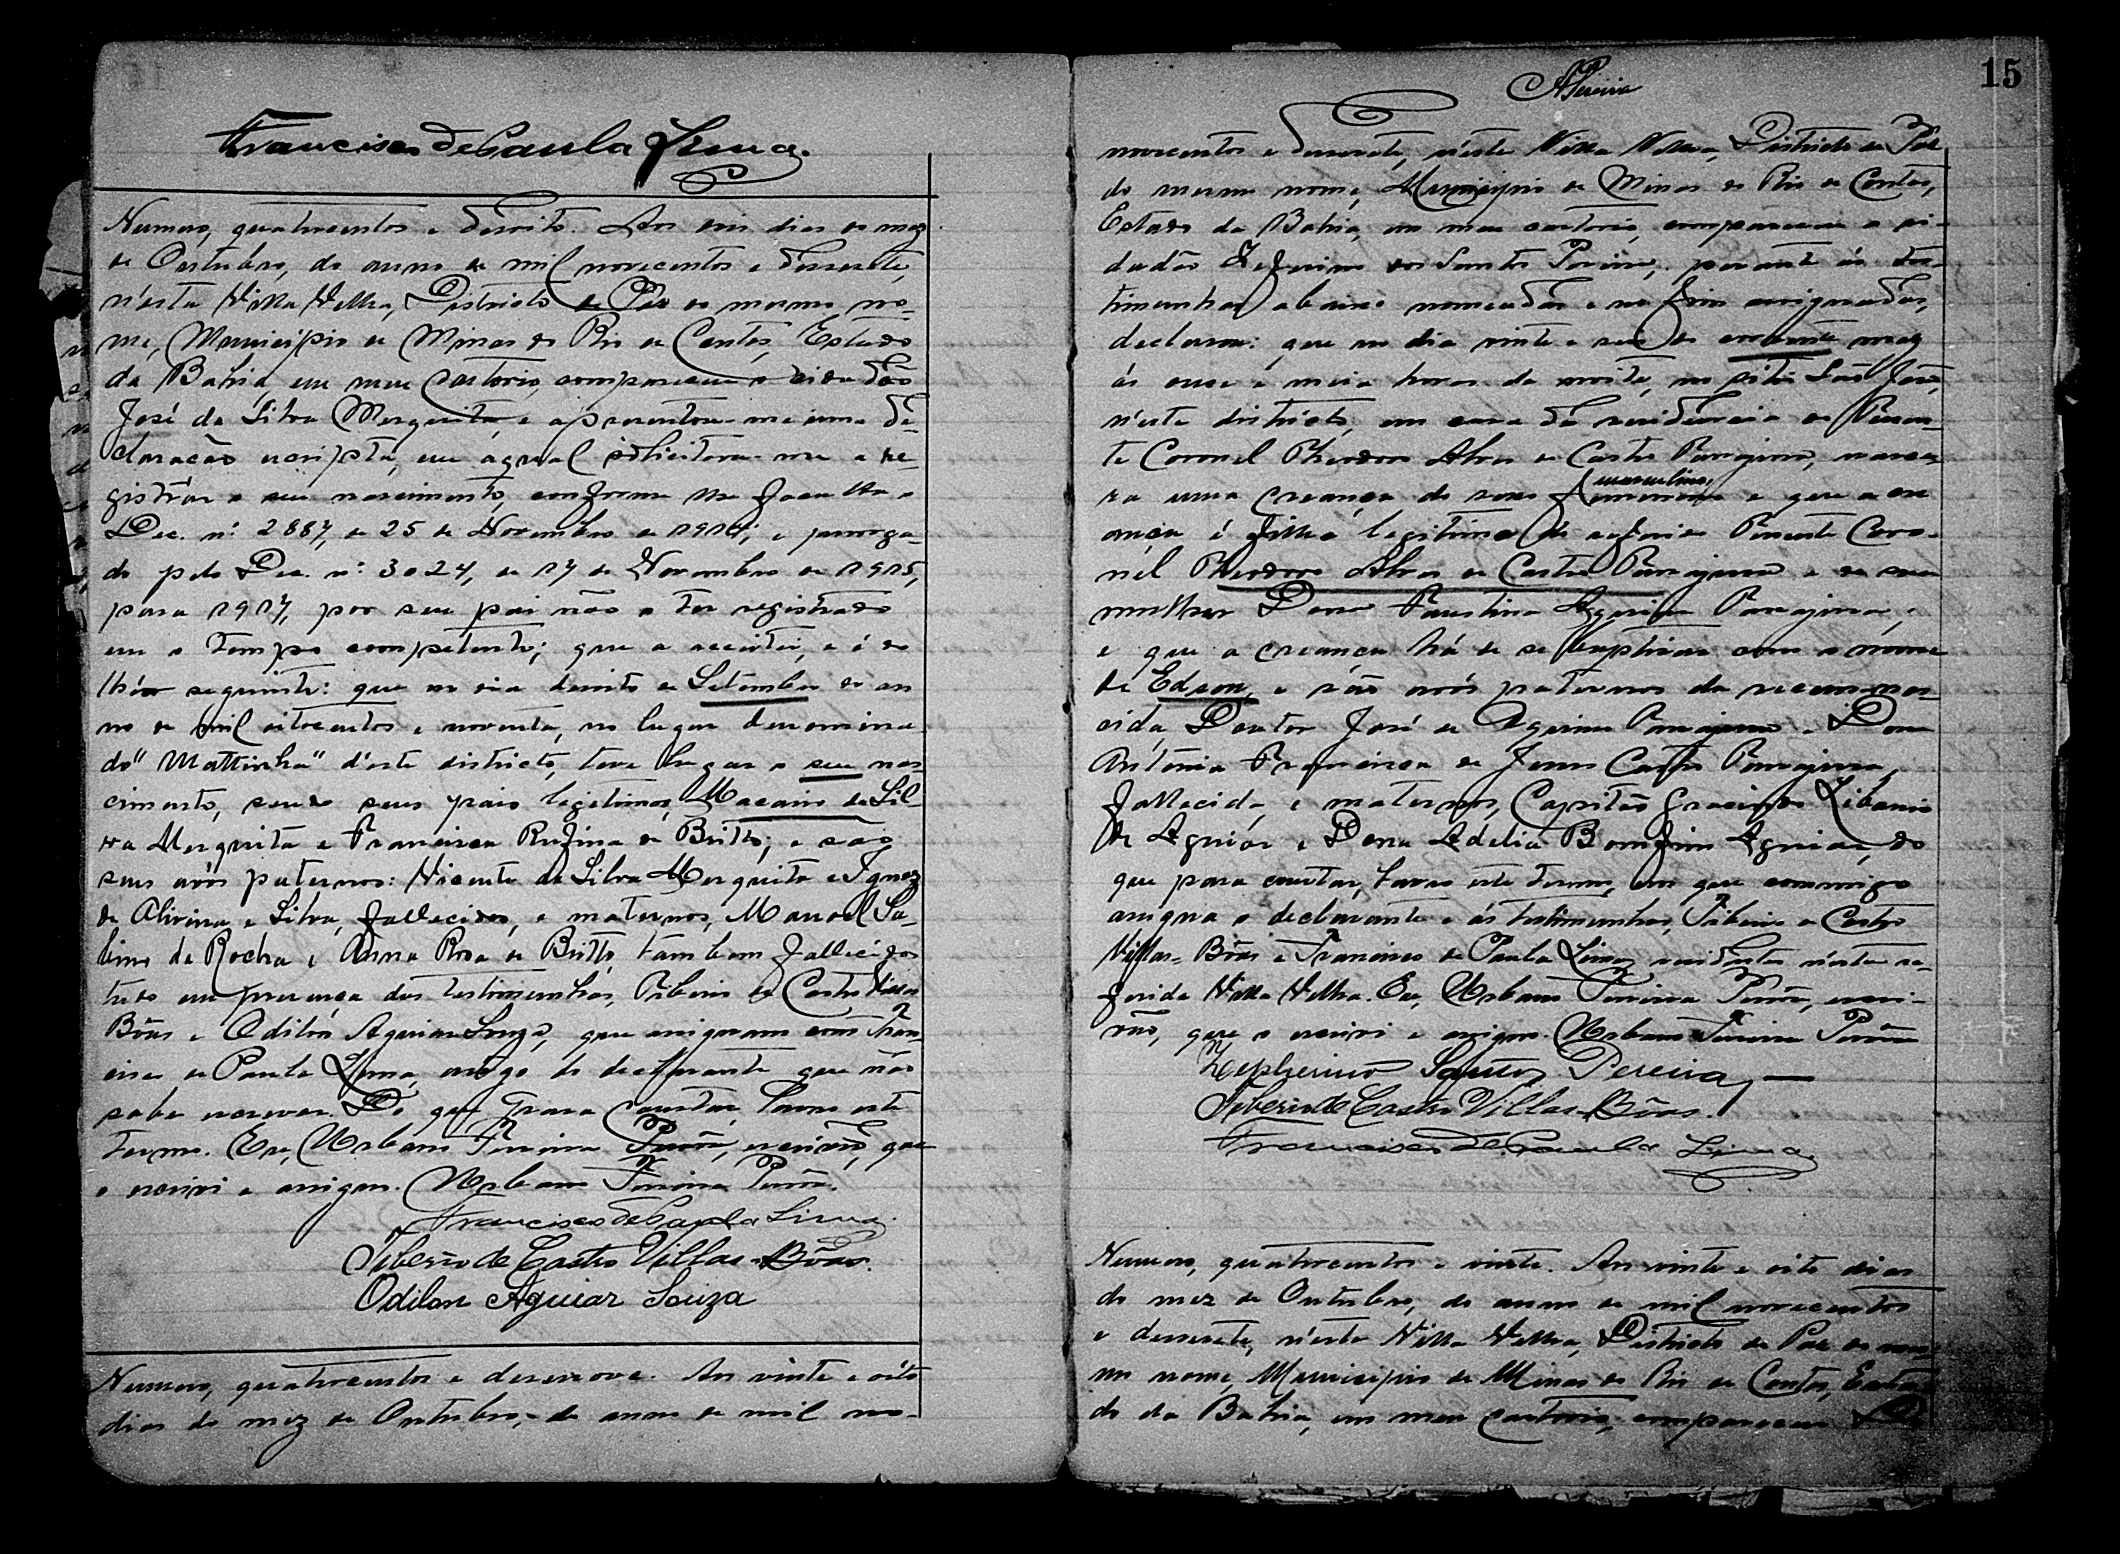 Francisco de Paula Lima.
Numero, quatrocentos e desoito. Aos seis dias do mez
de Outubro, do anno de mil novecentos e dessesete,
n'esta Villa Velha, Districto de Paz do mesmo no-
me, Municipio de Minas do Rio de Contas, Estado
da Bahia, em meu Cartorio, compareceu o cidadão
José da Silva Mesquita, e apresentou-me uma de-
claração escripta, em a qual solicitou-me a re-
gistrar o seu nascimento, conforme me faculta o
Dec. n: 2887, de 25 de Novembro de 1914, e proroga-
do pelo Dec. n: 3024, de 17 de Novembro de 1915,
para 1917, por seu pai não o ter registrado
em o tempo competente; que a acceitei, e é do
thêor seguinte: que no dia desoito de Setembro do an
no de mil oitocentos e noventa, no lugar denomina
do "Mattinha" d'este districto, teve lugar o seu nas-
cimento, sendo seus pais legitimos, Macario da Sil-
va Mesquita e Francisca Rufina de Britto; e são
seus avós paternos: Vicente da Silva Mesquita e Ignez
de Oliveira e Silva, fallecidos, e maternos, Manoel Sa-
bino da Rocha e Anna Rosa de Britto, tambem fallecidos
tudo em presença das testimunhas, Tiberio de Castro Villas
Bôas e Odilon Aguiar Souza, que assignam com Fran-
cisco de Paula Lima, a rôgo do declarante que não
sabe escrever. Do que para constar, lavro este
termo. Eu, Urbano Ferreira, escrivão, que
o escrivi e assigno. Urbano Ferreira
Francisco de Paula Lima.
Tiberio de Castro Villas-Bôas.
Odilon Aguiar Souza
Numero, quatrocentos e desenove. Aos vinte e oito
dias do mez de Outubro, do anno de mil no-
15
novecentos e dessesete, n'esta Villa Velha, Districto de Paz
do mesmo nome, Municipio de Minas do Rio de Contas,
Estado da Bahia, em meu cartorio, compareceu o ci-
dadão Zeferino dos Santos Pereira, perante ás tes-
timunhas abaixo nomeadas e no fim assignadas,
declarou: que no dia vinte e seis do corrente mez
ás onze e meia horas da noite, no sitio São José,
n'este districto, em casa da residencia do Tenen-
te Coronel Theodoro Alves de Castro, nasce-
ra uma creança do sexo masculino, e que a cre
ança é filho legitimo do referido Tenente Coro-
nel Theodoro Alves de Castro e de sua
mulher Dona Faustina Aguiar,
e que a creança há de se baptisar com o nome
de Edson, e são avós paternos da recem-nas-
cida, Doutor José de Aquino e Dona
Antonia Francisca de Jesus Castro,
fallecida, e maternos, Capitão Gracindo Libanio
de Aguiar e Dona Adelia Bomfim Aguiar, do
que para constar, lavro este termo, em que commigo
assigna o declarante e ás testimunhas, Tiberio de Castro
Villas-Bôas e Francisco de Paula Lima, residentes n'esta re-
ferida Villa Velha. Eu, Urbano Ferreira, escri-
vão, que o escrivi e assigno. Urbano Ferreira
Zepherino Santos Pereira
Tiberio de Castro Villas-Bôas.
Francisco de Paula Lima.
Numero, quatrocentos e vinte. Aos vinte e oito dias
do mez de Outubro, do anno de mil novecentos
e dessesete, n'esta Villa Velha, Districto de Paz do mes-
mo nome, Municipio de Minas do Rio de Contas, Esta-
do da Bahia, em meu cartorio, compareceu